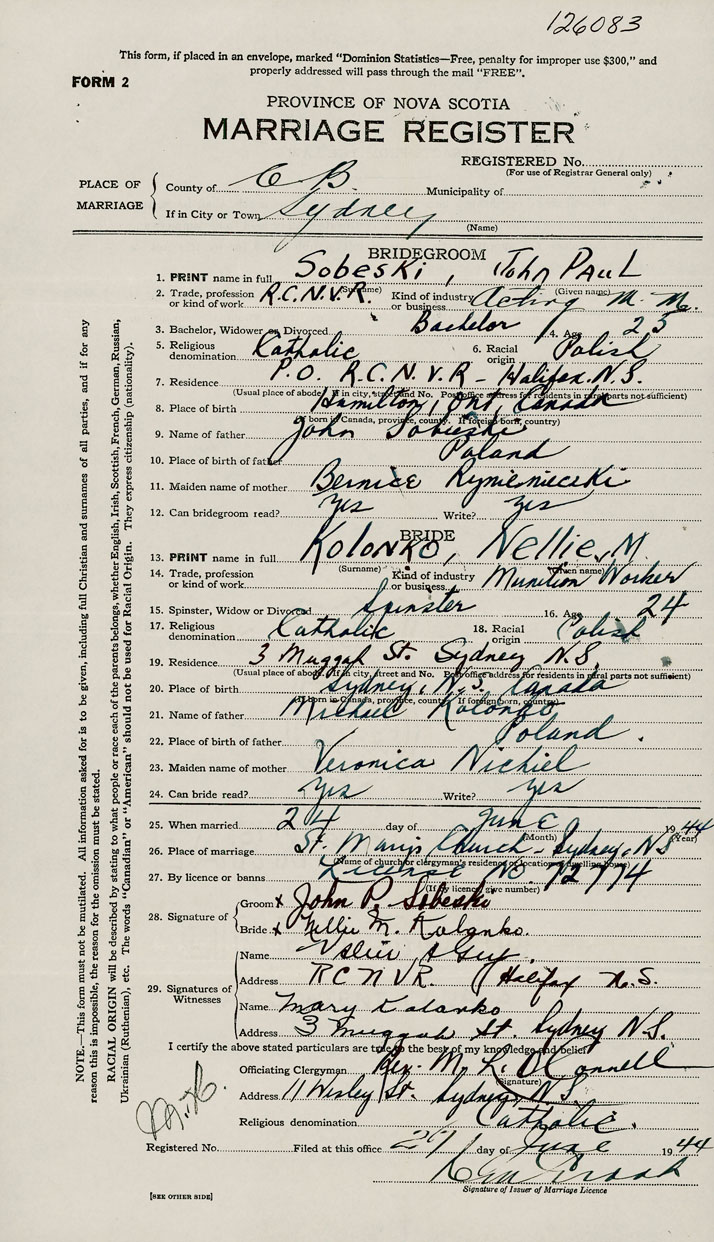 126083
This form, if placed in an envelope, marked "Dominion Statistics—Free, penalty for improper use $300," and
properly addressed will pass through the mail "FREE".
FORM 2
PROVINCE OF NOVA SCOTIA
MARRIAGE REGISTER
REGISTERED No.
(For use of Registrar General only)
PLACE OF MARRIAGE
County of C B. Municipality of
If in City or Town Sydney
(Name)
BRIDEGROOM
1. PRINT name in full Sobeski, John Paul
(Surname) (Given name)
2. Trade, profession or kind of work R.C.N.V.R. Kind of industry or business Acting M. M.
3. Bachelor, Widower or Divorced Bachelor 4. Age 25
5. Religious denomination Catholic 6. Racial origin Polish
7. Residence P.O. R.C.N.V.R - Halifax. N.S.
(Usual place of abode. If in city, street and No. Post office address for residents in rural parts not sufficient)
8. Place of birth Hamilton, Ont, Canada
(If born in Canada, province, county. If foreign born, country)
9. Name of father John Sobieski
10. Place of birth of father Poland
11. Maiden name of mother Bernice
12. Can bridegroom read? yes Write? yes
BRIDE
13. PRINT name in full Kolonko, Nellie, M.
(Surname) (Given name)
14. Trade, profession or kind of work Kind of industry or business Munition Worker
15. Spinster, Widow or Divorced Spinster 16. Age 24
17. Religious denomination Catholic 18. Racial origin Polish
19. Residence 3 Muggah St. Sydney N.S.
(Usual place of abode. If in city, street and No. Post office address for residents in rural parts not sufficient)
20. Place of birth Sydney, N.S. Canada
(If born in Canada, province, county. If foreign born, country)
21. Name of father Michael Kolonko
22. Place of birth of father Poland.
23. Maiden name of mother Veronica Nichiel
24. Can bride read? yes Write? yes
25. When married 24 day of June 1944
(Month) (Year)
26. Place of marriage St. Mary's Church - Sydney, N.S
(Name of church or clergyman's residence or location of dwelling house)
27. By licence or banns License No. 72774
(If by licence, give number)
28. Signature of
Groom x John P. Sobeski
Bride x Nellie M. Kolonko.
29. Signatures of Witnesses
Name
Address RCNVR. Halifax N.S.
Name Mary Kolonko
Address 3 Muggah St. Sydney N.S.
I certify the above stated particulars are true to the best of my knowledge and belief
Officiating Clergyman Rev. M. L. O'Connell
(Signature)
Address 11 Wesley St. Sydney, N.S.
Religious denomination Catholic.
Registered No. Filed at this office 29 day of June 1944
Signature of Issuer of Marriage Licence
[SEE OTHER SIDE]
NOTE.—This form must not be mutilated. All information asked for is to be given, including full Christian and surnames of all parties, and if for any
reason this is impossible, the reason for the omission must be stated.
RACIAL ORIGIN will be described by stating to what people or race each of the parents belongs, whether English, Irish, Scottish, French, German, Russian,
Ukrainian (Ruthenian), etc. The words "Canadian" or "American" should not be used for Racial Origin. They express citizenship (nationality).